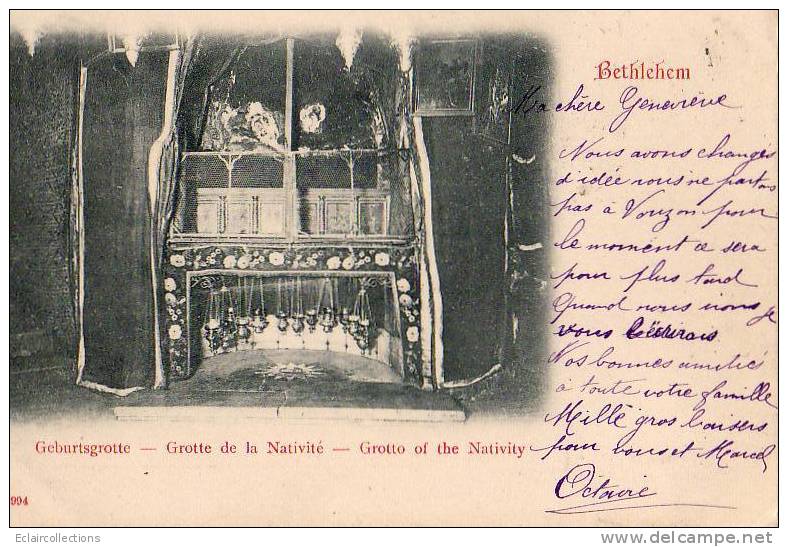 Bethlehem
Ma chère Geneviève
Nous avons changés
d'idée nous ne partons
pas à Vouzon pour
le moment ce sera
pour plus tard
Quand nous irons je
vous l'écrirais
Nos bonnes amitiés
à toute votre famille
Mille gros baisers
pour vous et Marcel
Octavie
Geburtsgrotte — Grotte de la Nativité — Grotto of the Nativity
994
Eclaircollections
www.delcampe.net